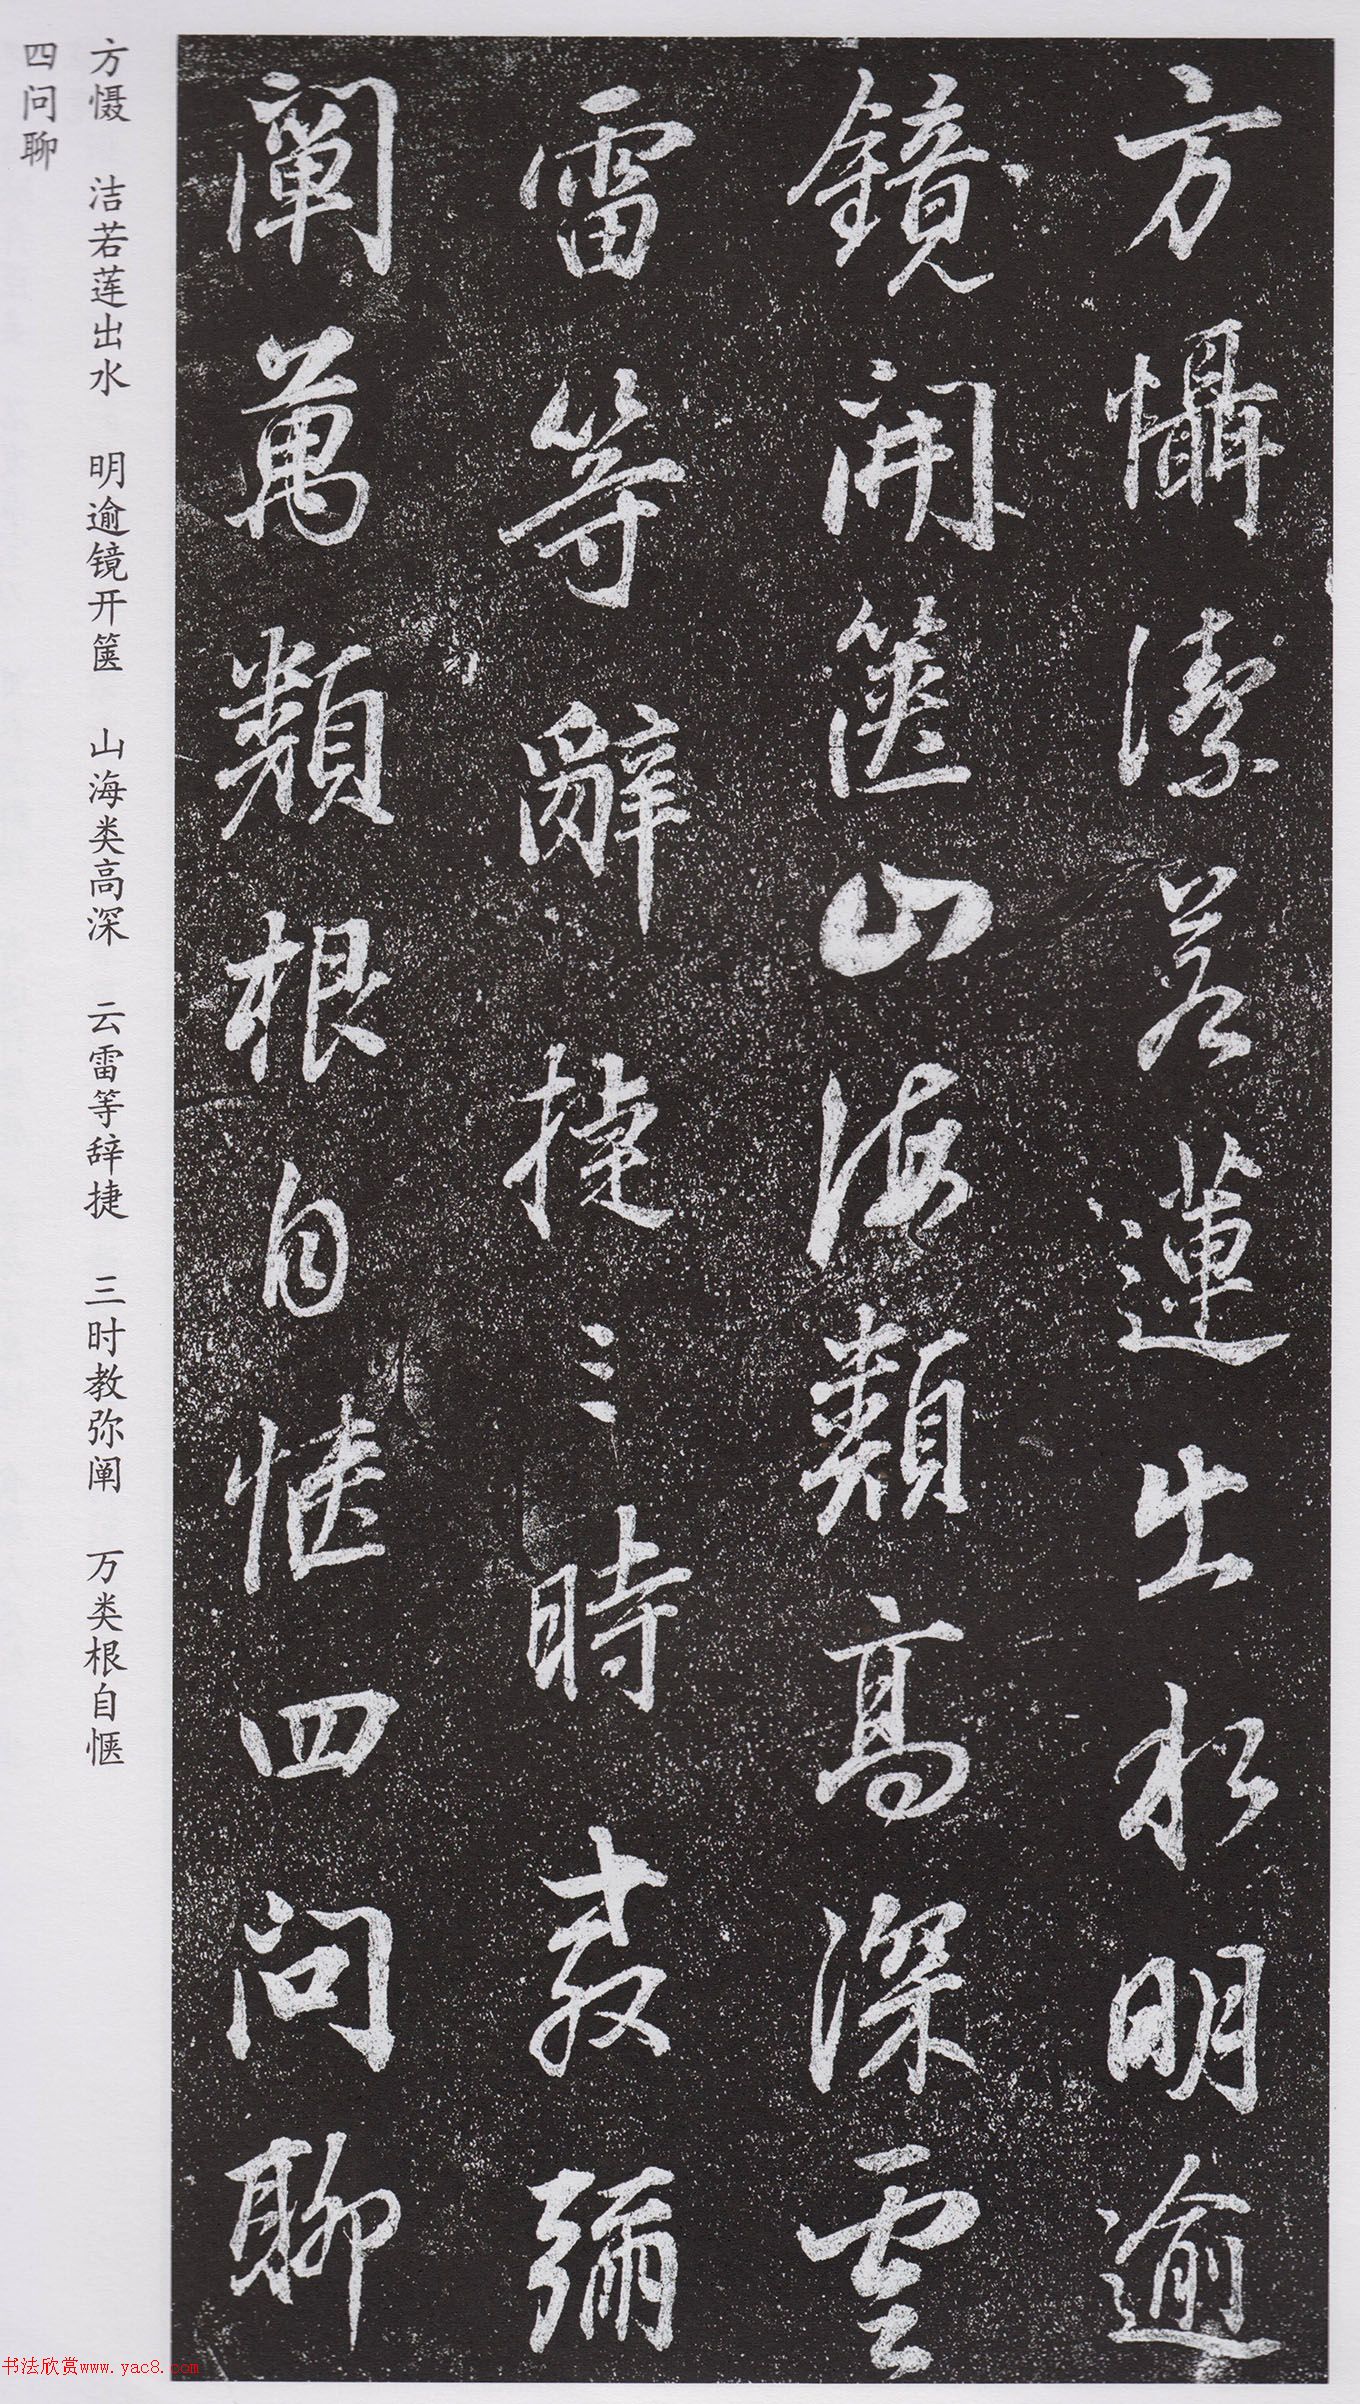 方懾潔若蓮出水明逾
鏡開篋山海類高深雲
雷等辭捷三時教彌
闡萬類根自愜四問聊
方慑　洁若莲出水　明逾镜开箧　山海类高深　云雷等辞捷　三时教弥阐　万类根自惬
四问聊
书法欣赏www.yac8.com